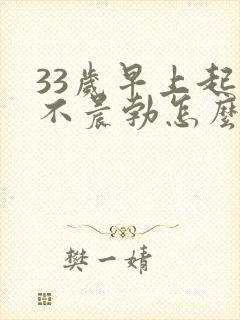 33歲早上起
不晨勃怎麼
樊一婧